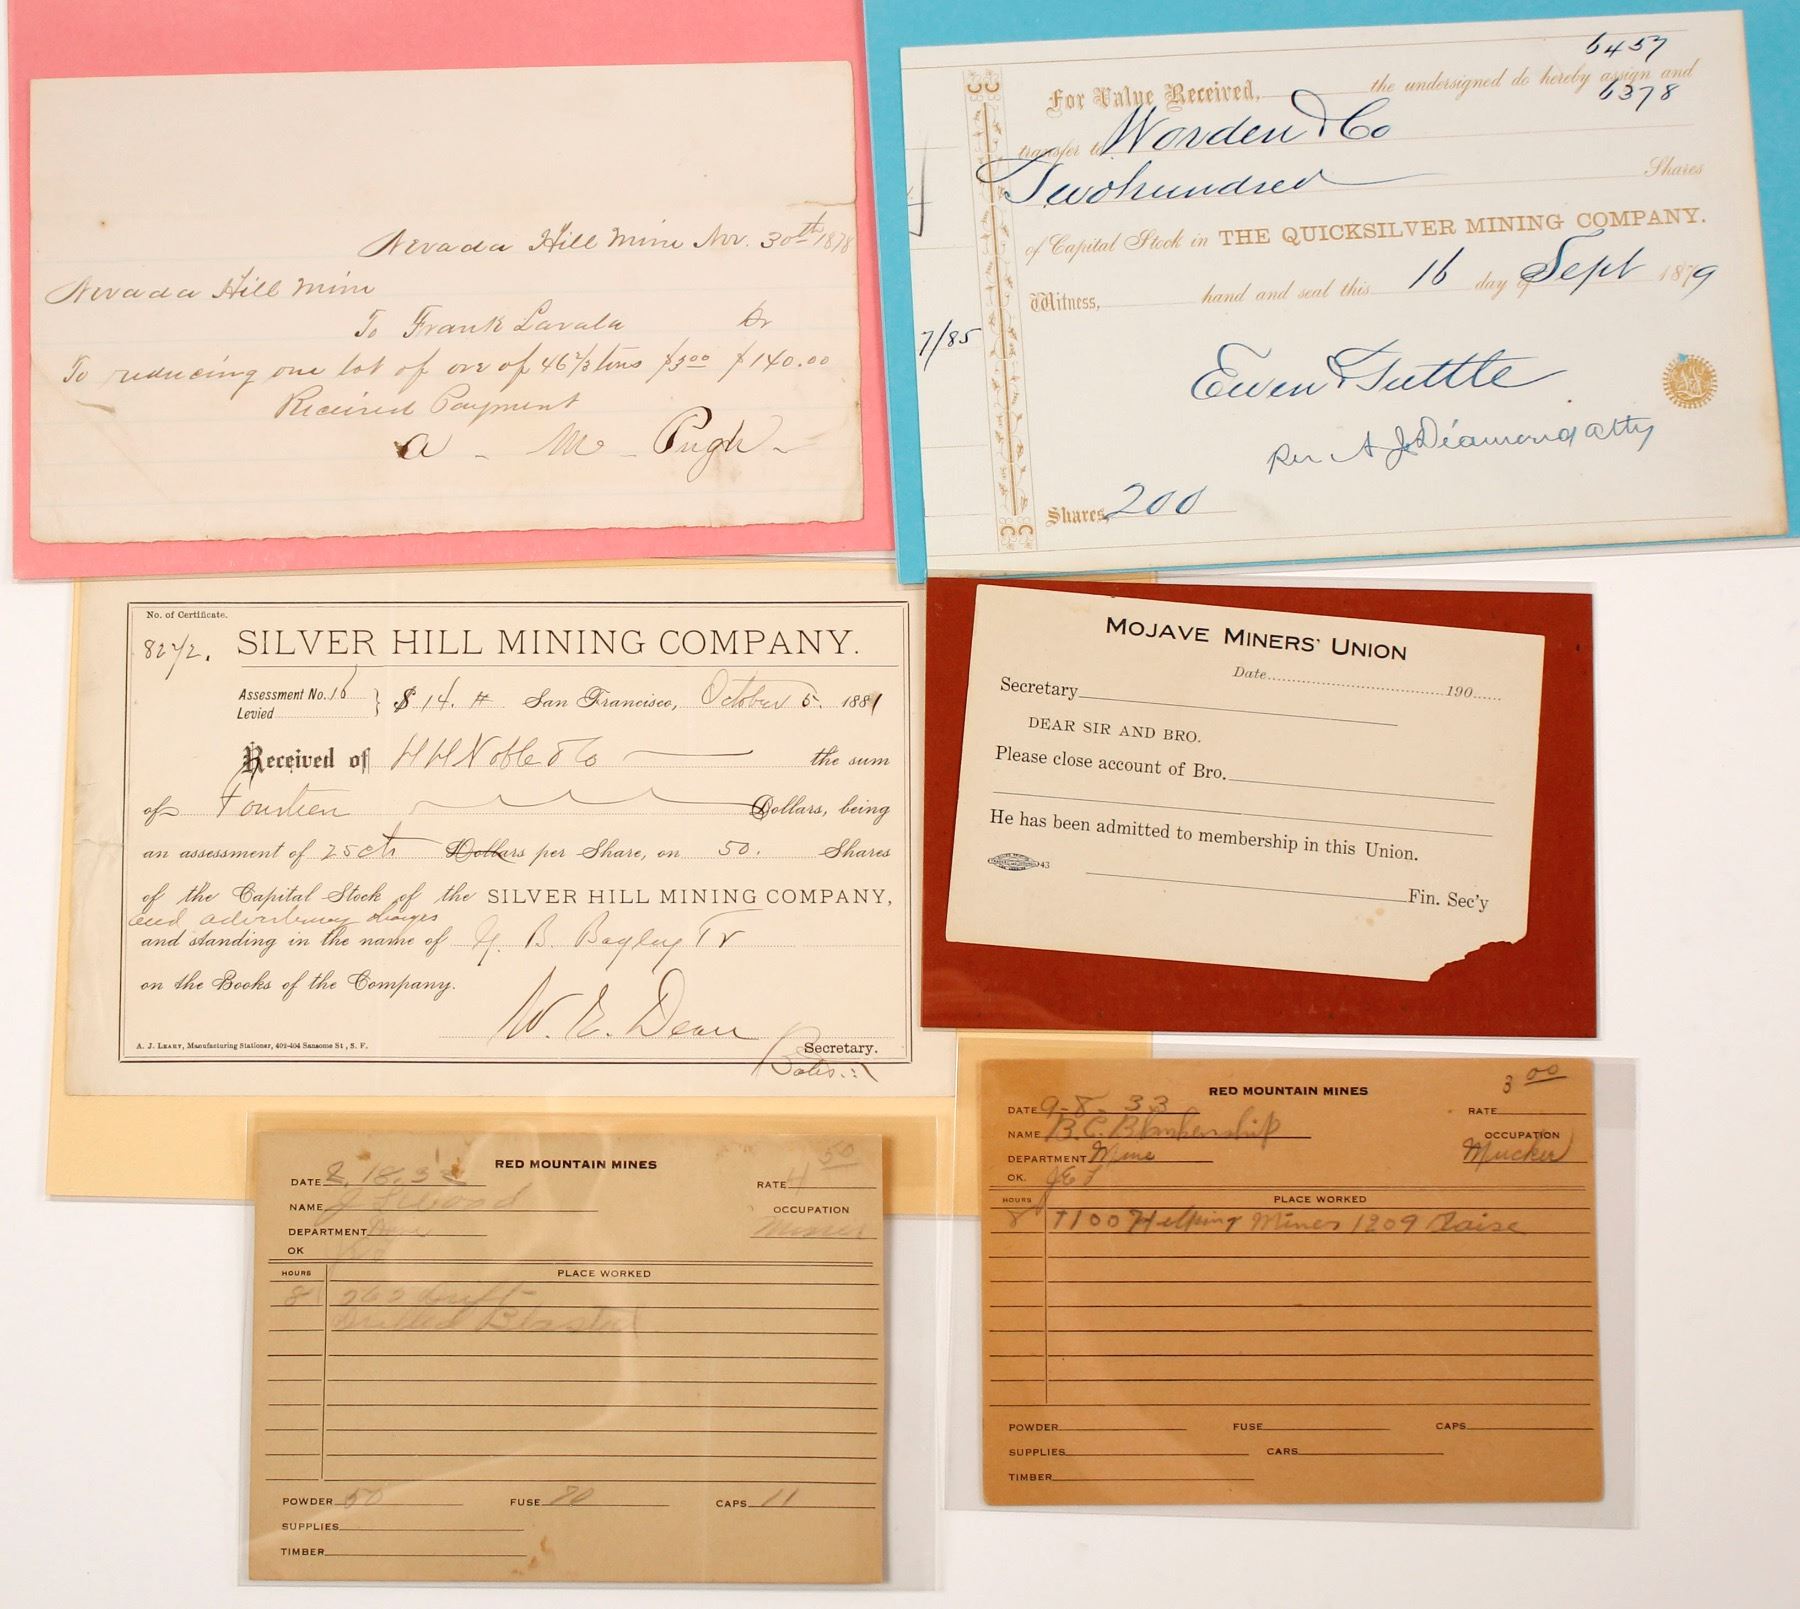 Nevada Hill Mine Nov. 30th 1878
Nevada Hill Mine
To Frank Lavala Dr
To reducing one lot of ore of 46 2/3 tons $3.00 $140.00
Received Payment
A. M. Pugh
6457
For Value Received, the undersigned do hereby assign and
6378
transfer to Worden & Co
Two hundred Shares
of Capital Stock in THE QUICKSILVER MINING COMPANY.
Witness, hand and seal this 16 day of Sept 1879
7/85
Ewen & Tuttle
Per A J Diamond Atty
Shares, 200
No. of Certificate.
SILVER HILL MINING COMPANY.
Assessment No. 16
Levied
$14. San Francisco, October 5. 1881
Received of H H Noble & Co the sum
of Fourteen Dollars, being
an assessment of 25cts Dollars per Share, on 50. Shares
of the Capital Stock of the SILVER HILL MINING COMPANY,
and advertising charges
and standing in the name of B. Bagley Tr
on the Books of the Company.
W. E. Dean
Secretary.
A. J. LEARY, Manufacturing Stationer, 402-404 Sansome St., S. F.
MOJAVE MINERS' UNION
Date 190
Secretary
DEAR SIR AND BRO.
Please close account of Bro.
He has been admitted to membership in this Union.
43
Fin. Sec'y
RED MOUNTAIN MINES
DATE 8.18.32
RATE 4 50
NAME
OCCUPATION
DEPARTMENT Mine
Miner
OK
HOURS PLACE WORKED
8 262 Drift
Drilled Blasted
POWDER 50 FUSE 70 CAPS 11
SUPPLIES
TIMBER
RED MOUNTAIN MINES
3 00
DATE 9-8-33
RATE
NAME B.C. Blankenship
OCCUPATION
DEPARTMENT Mine
Mucker
OK.
HOURS PLACE WORKED
8 1100 Helping Miner 1209 Raise
POWDER FUSE CAPS
SUPPLIES CARS
TIMBER